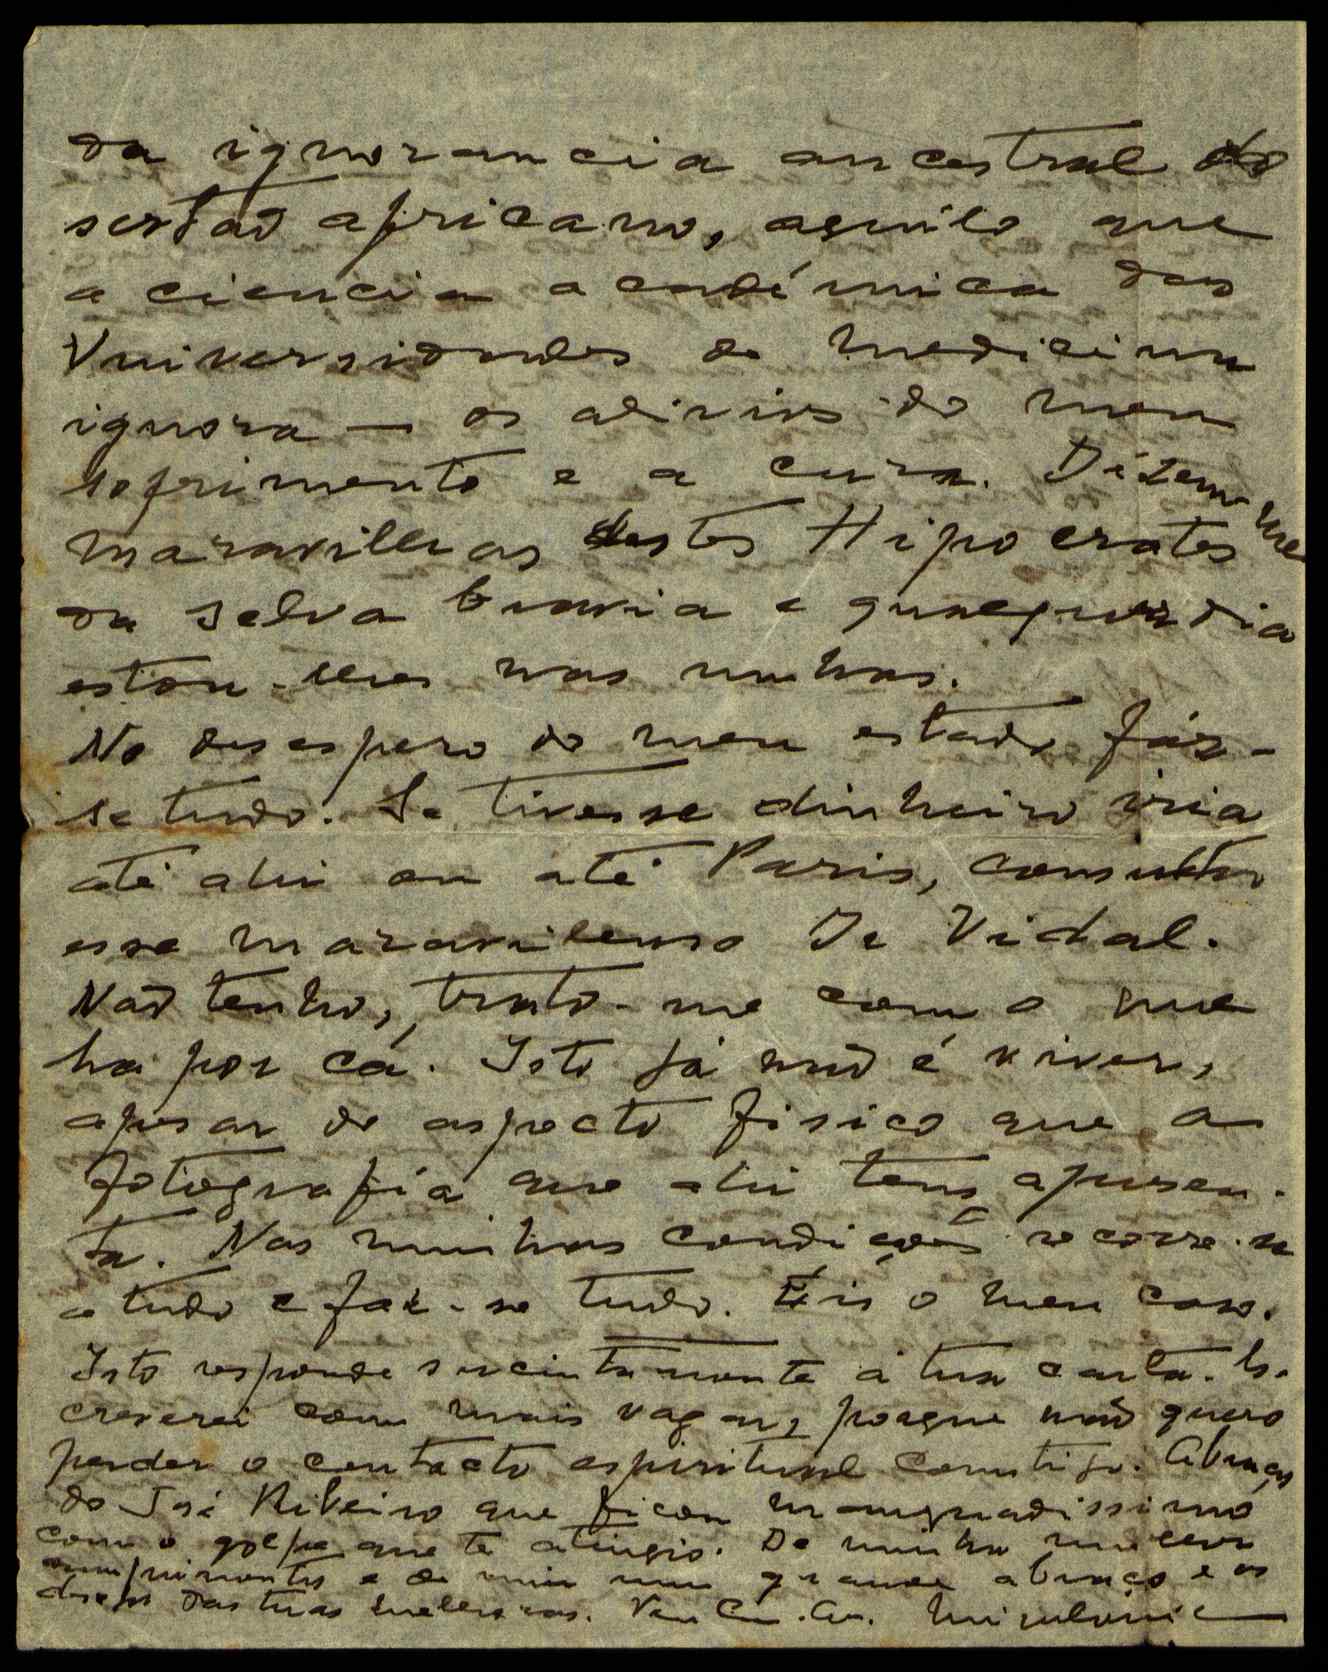 da ignorancia ancestral do
sertão africano, aquilo que
a ciencia académica das
Universidades de medicina
ignora — os alivios do meu
sofrimento e a cura. Dizem-me
maravilhas destes Hipocrates
da selva bravia e qualquer dia
estou-lhes nas unhas.
No desespero do meu estado fáz-
se tudo. Se tivesse dinheiro iria
até ahi ou até Paris, consultar
esse maravilhoso Dr Vidal.
Não tenho, trato-me com o que
ha por cá. Isto já não é viver,
apesar do aspecto fisico que a
fotografia que ahi tens apresen-
ta. Nas minhas condições recorre-se
a tudo e faz-se tudo. Eis o meu caso.
Isto responde sucintamente á tua carta. Es-
creverei com mais vagar, porque não quero
perder o contacto espiritual comtigo. Abraços
do José Ribeiro que ficou magoadissimo
com o golpe que te atingio. De minha mulher
cumprimentos e de mim um grande abraço e os
desejos das tuas melhoras.